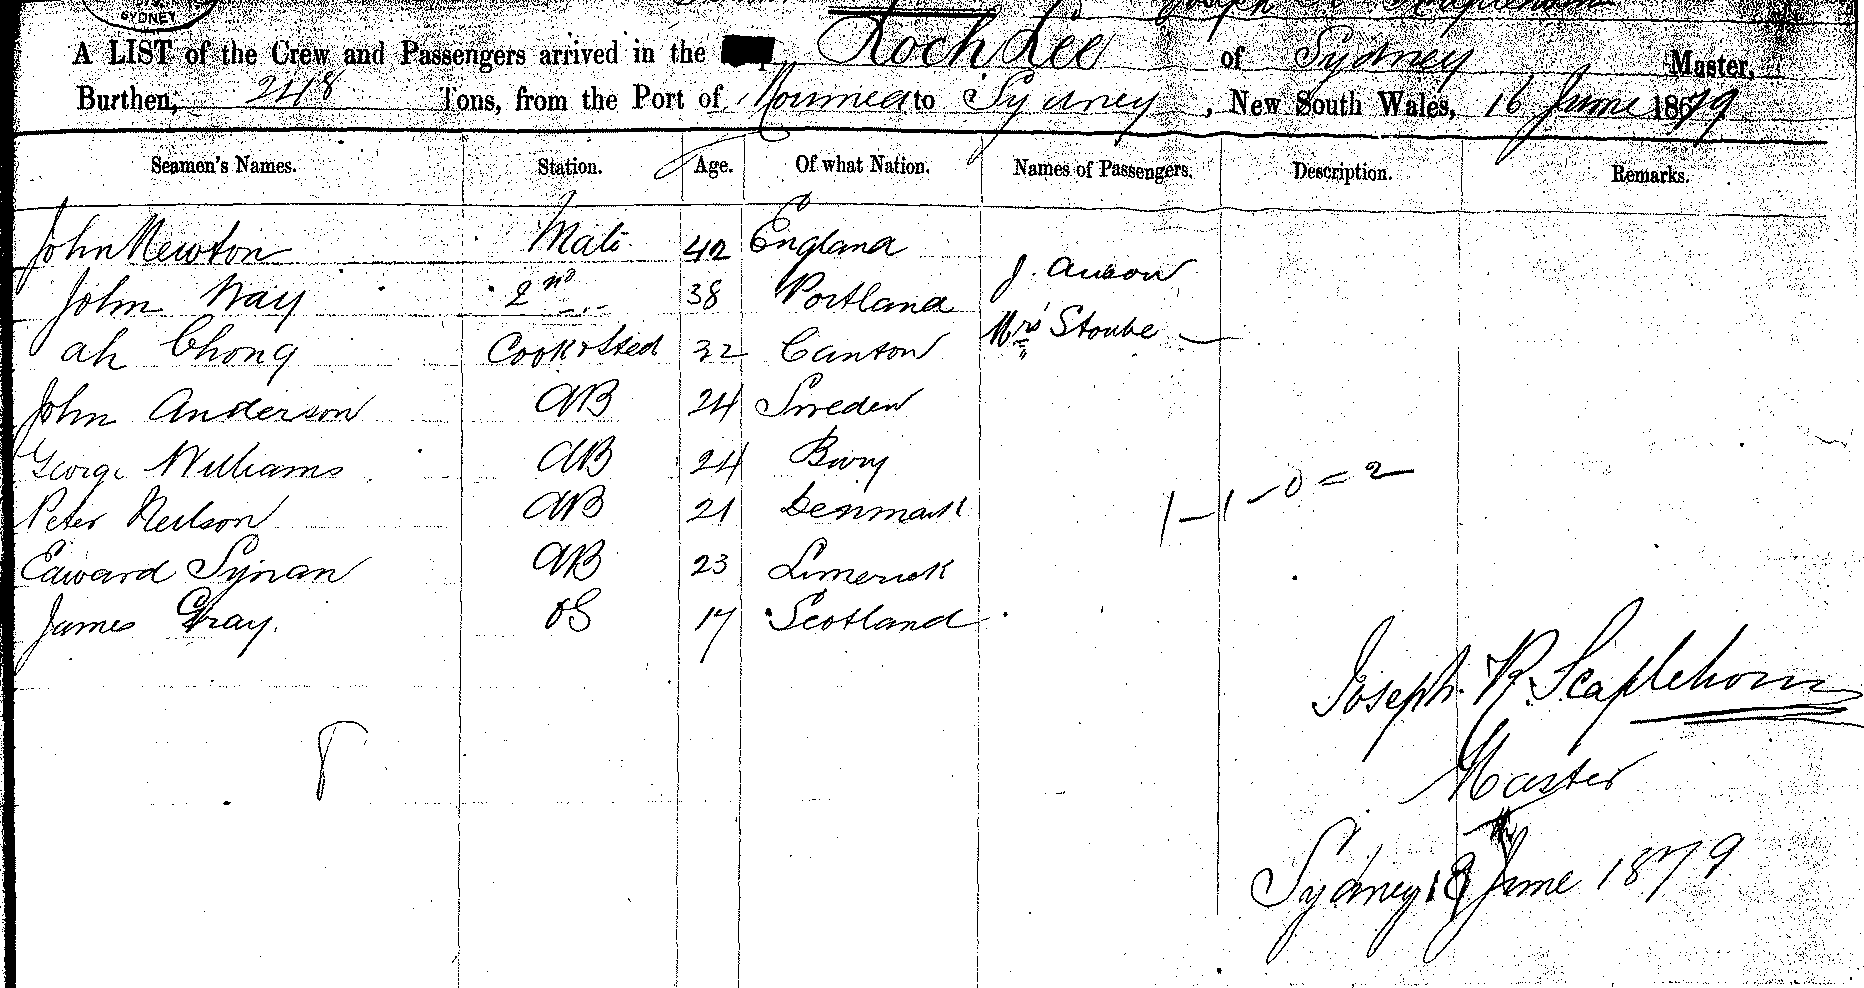 SYDNEY
A LIST of the Crew and Passengers arrived in the Loch Lee of Sydney Master,
Burthen, 248 Tons, from the Port of Noumea to Sydney, New South Wales, 16 June 1879
Seamen's Names. Station. Age. Of what Nation. Names of Passengers. Description. Remarks.
John Newton Mate 42 England
J. Anson
John Way 2nd 38 Portland
Mrs Stoube
Ah Chong Cook & Sted 32 Canton
John Anderson AB 24 Sweden
George Williams AB 24 Bury
1-1-0=2
Peter Neilson AB 21 Denmark
Edward Synan AB 23 Limerick
James Gray. OS 17 Scotland
Joseph R. Scaplehorn
Master
8
Sydney 18 June 1879